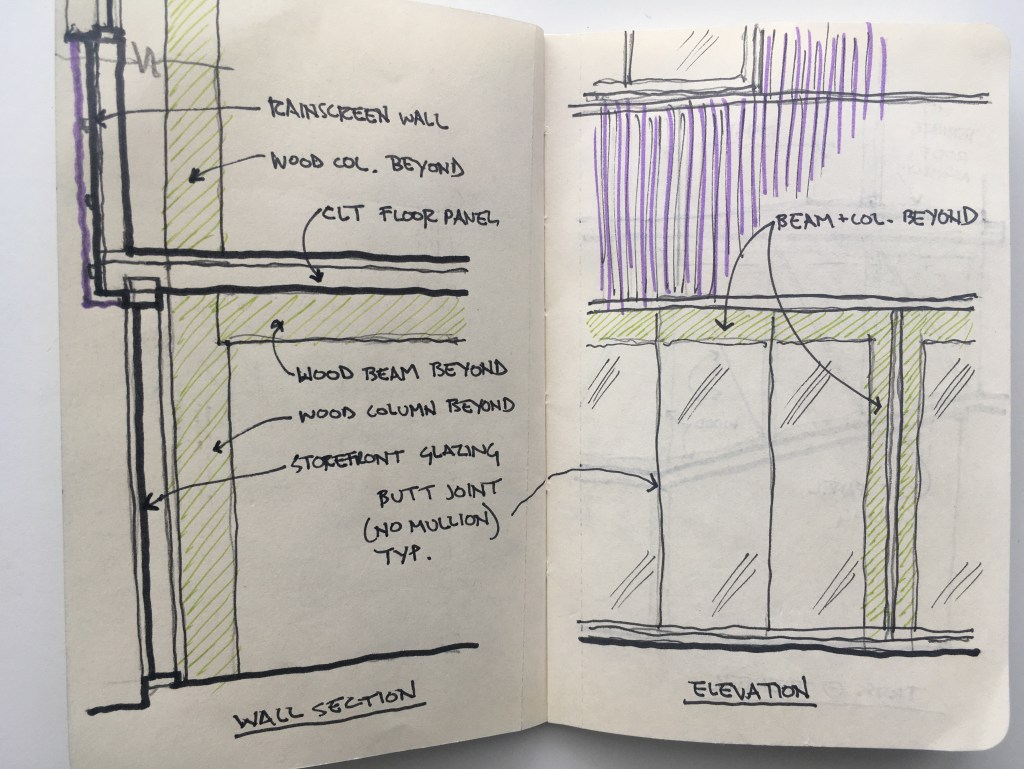 RAINSCREEN WALL
WOOD COL. BEYOND
CLT FLOOR PANEL
WOOD BEAM BEYOND
WOOD COLUMN BEYOND
STOREFRONT GLAZING
BUTT JOINT
(NO MULLION)
TYP.
WALL SECTION
BEAM + COL. BEYOND
ELEVATION